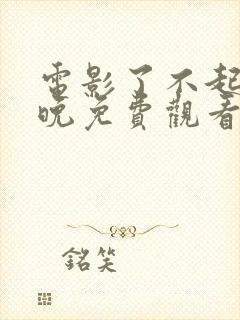 電影了不起
晚免費觀看
銘笑